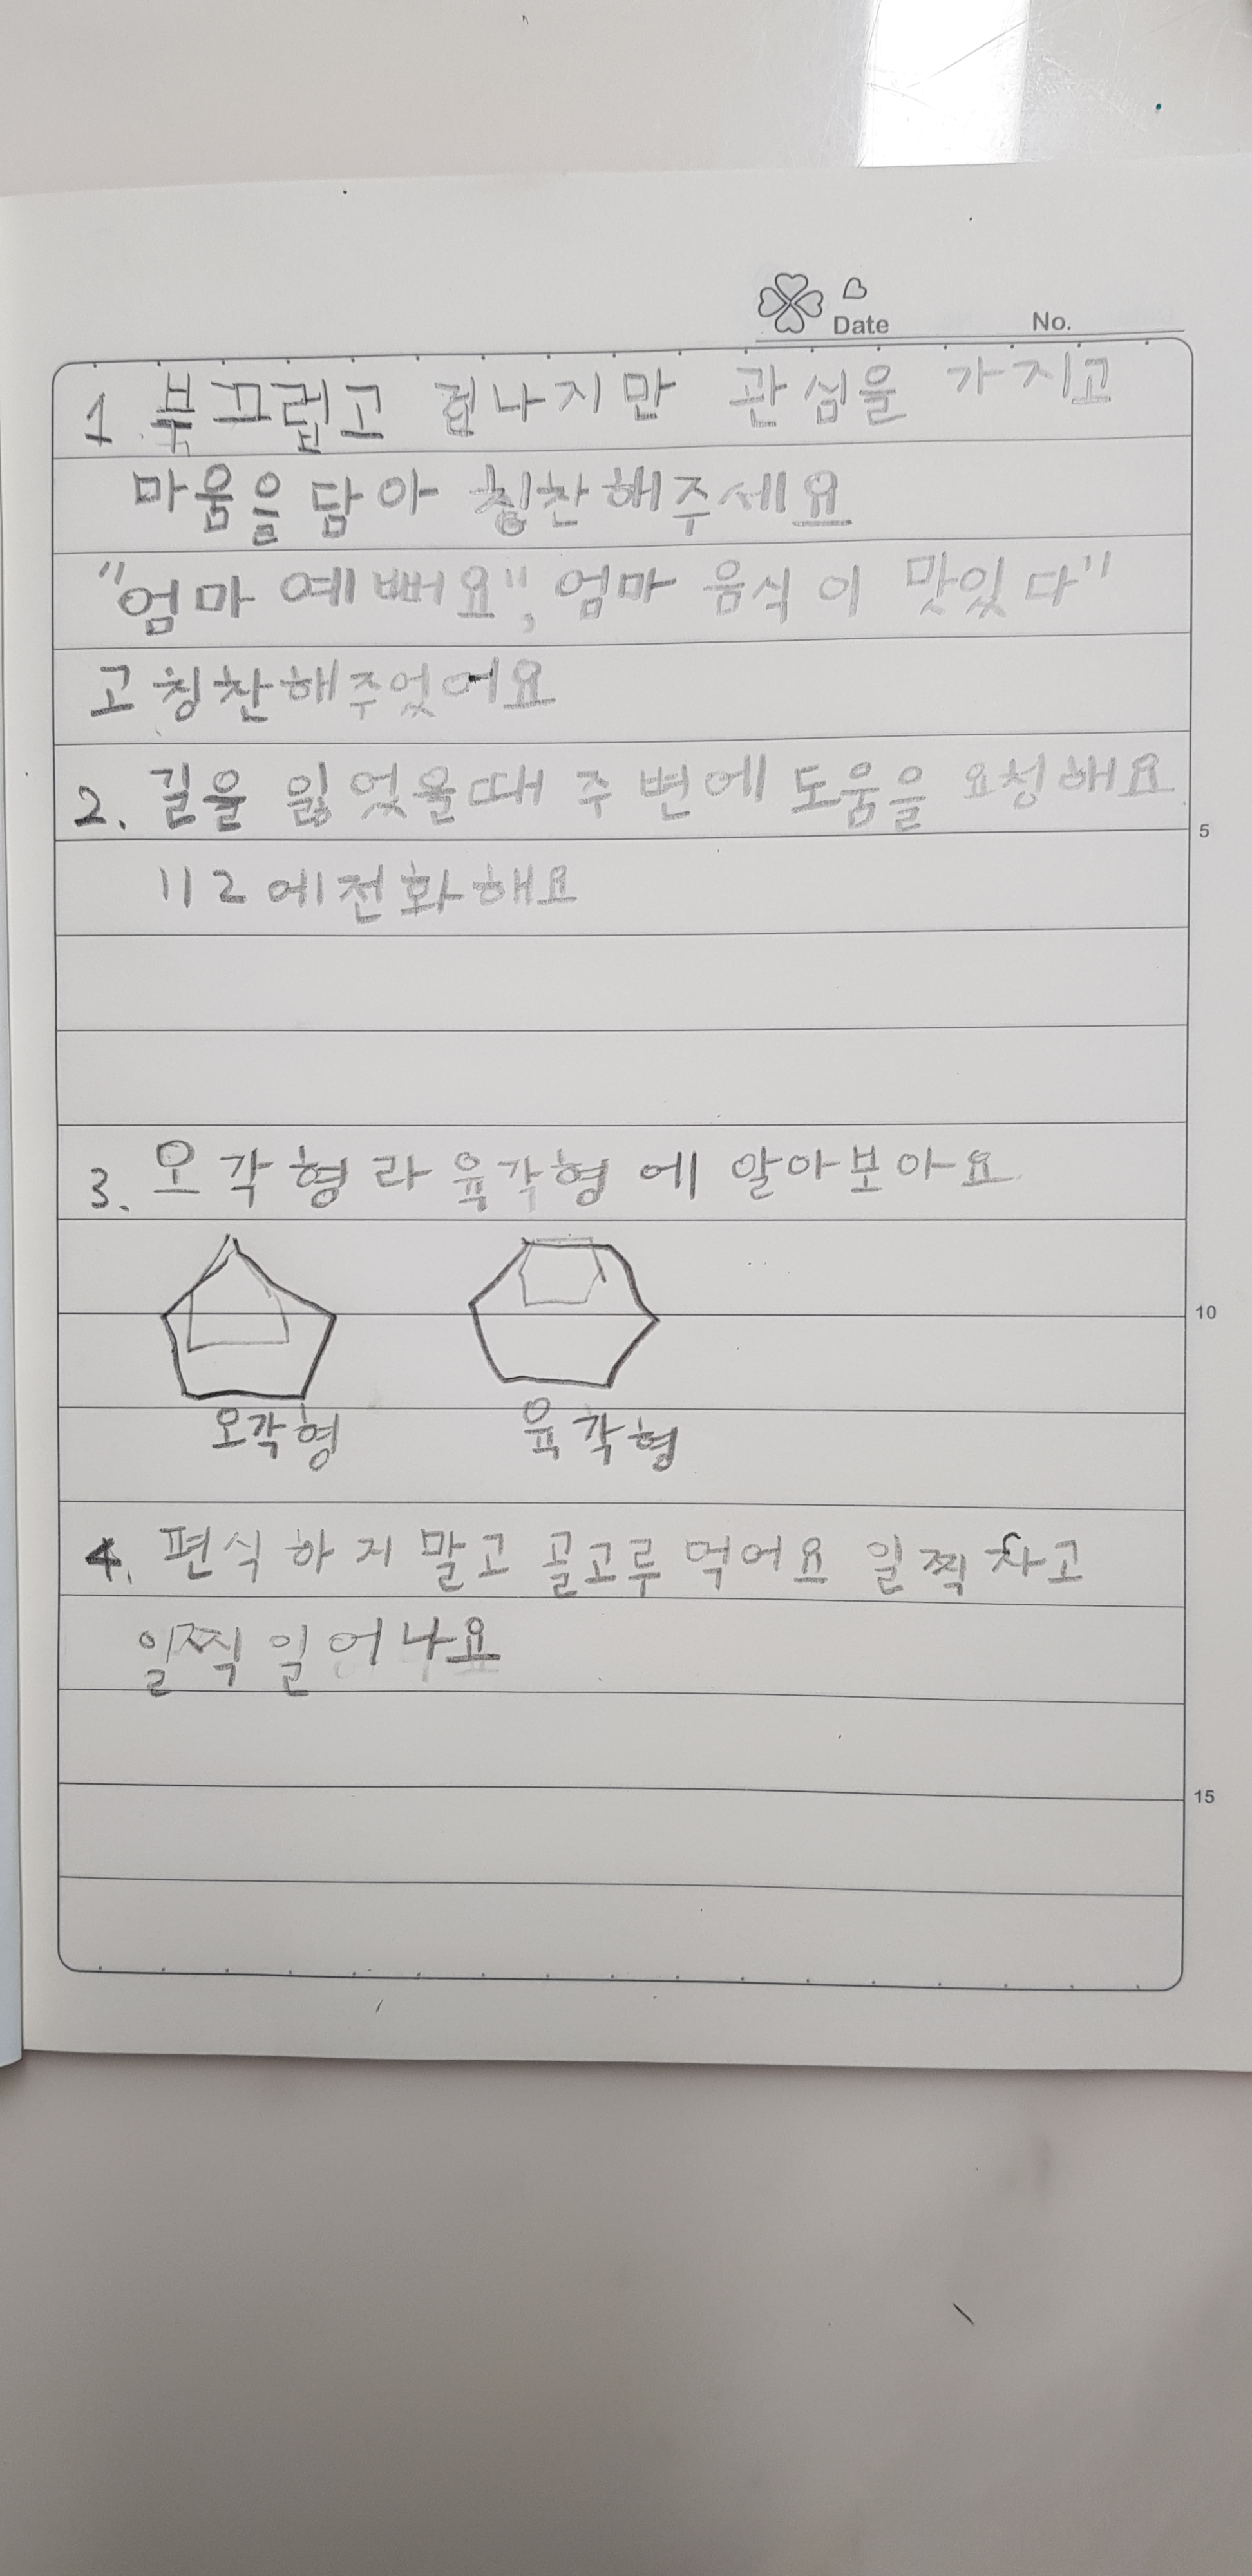 Date No.
1 부끄럽고 겁나지만 관심을 가지고
마움을 담아 칭찬해주세요
"엄마 예뻐요", 엄마 음식이 맛있다"
고 칭찬해주엇어요
2. 길을 잃엇을때 주변에 도움을 요청해요
5
112에전화해요
3. 오각형라 육각형에 알아보아요
10
오각형 육각형
4. 편식하지말고 골고루먹어요 일찍 자고
일찍일어나요
15